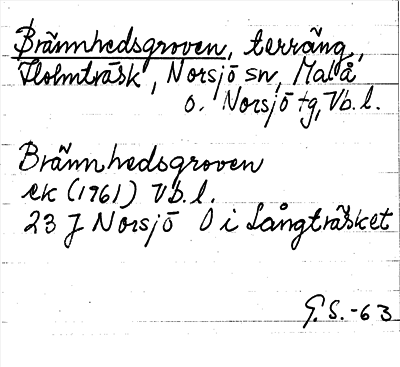 Brännhedsgroven, terräng,
Holmträsk, Norsjö sn, Malå
o. Norsjö tg, Vb. l.
Brännhedsgroven
ek (1961) Vb. l.
23 J Norsjö O i Långträsket
G.S. -63